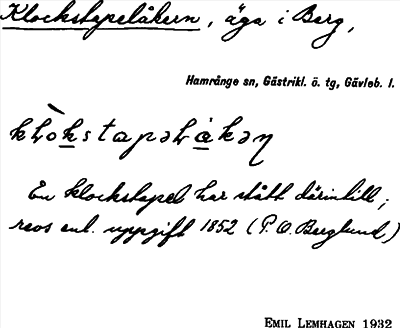 Klockstapelåkern, äga i Berg,
Hamrånge sn, Gästrikl. ö. tg, Gävleb. l.
En klockstapel har stått därintill;
revs enl. uppgift 1852 (P. O. Berglund)
EMIL LEMHAGEN 1932